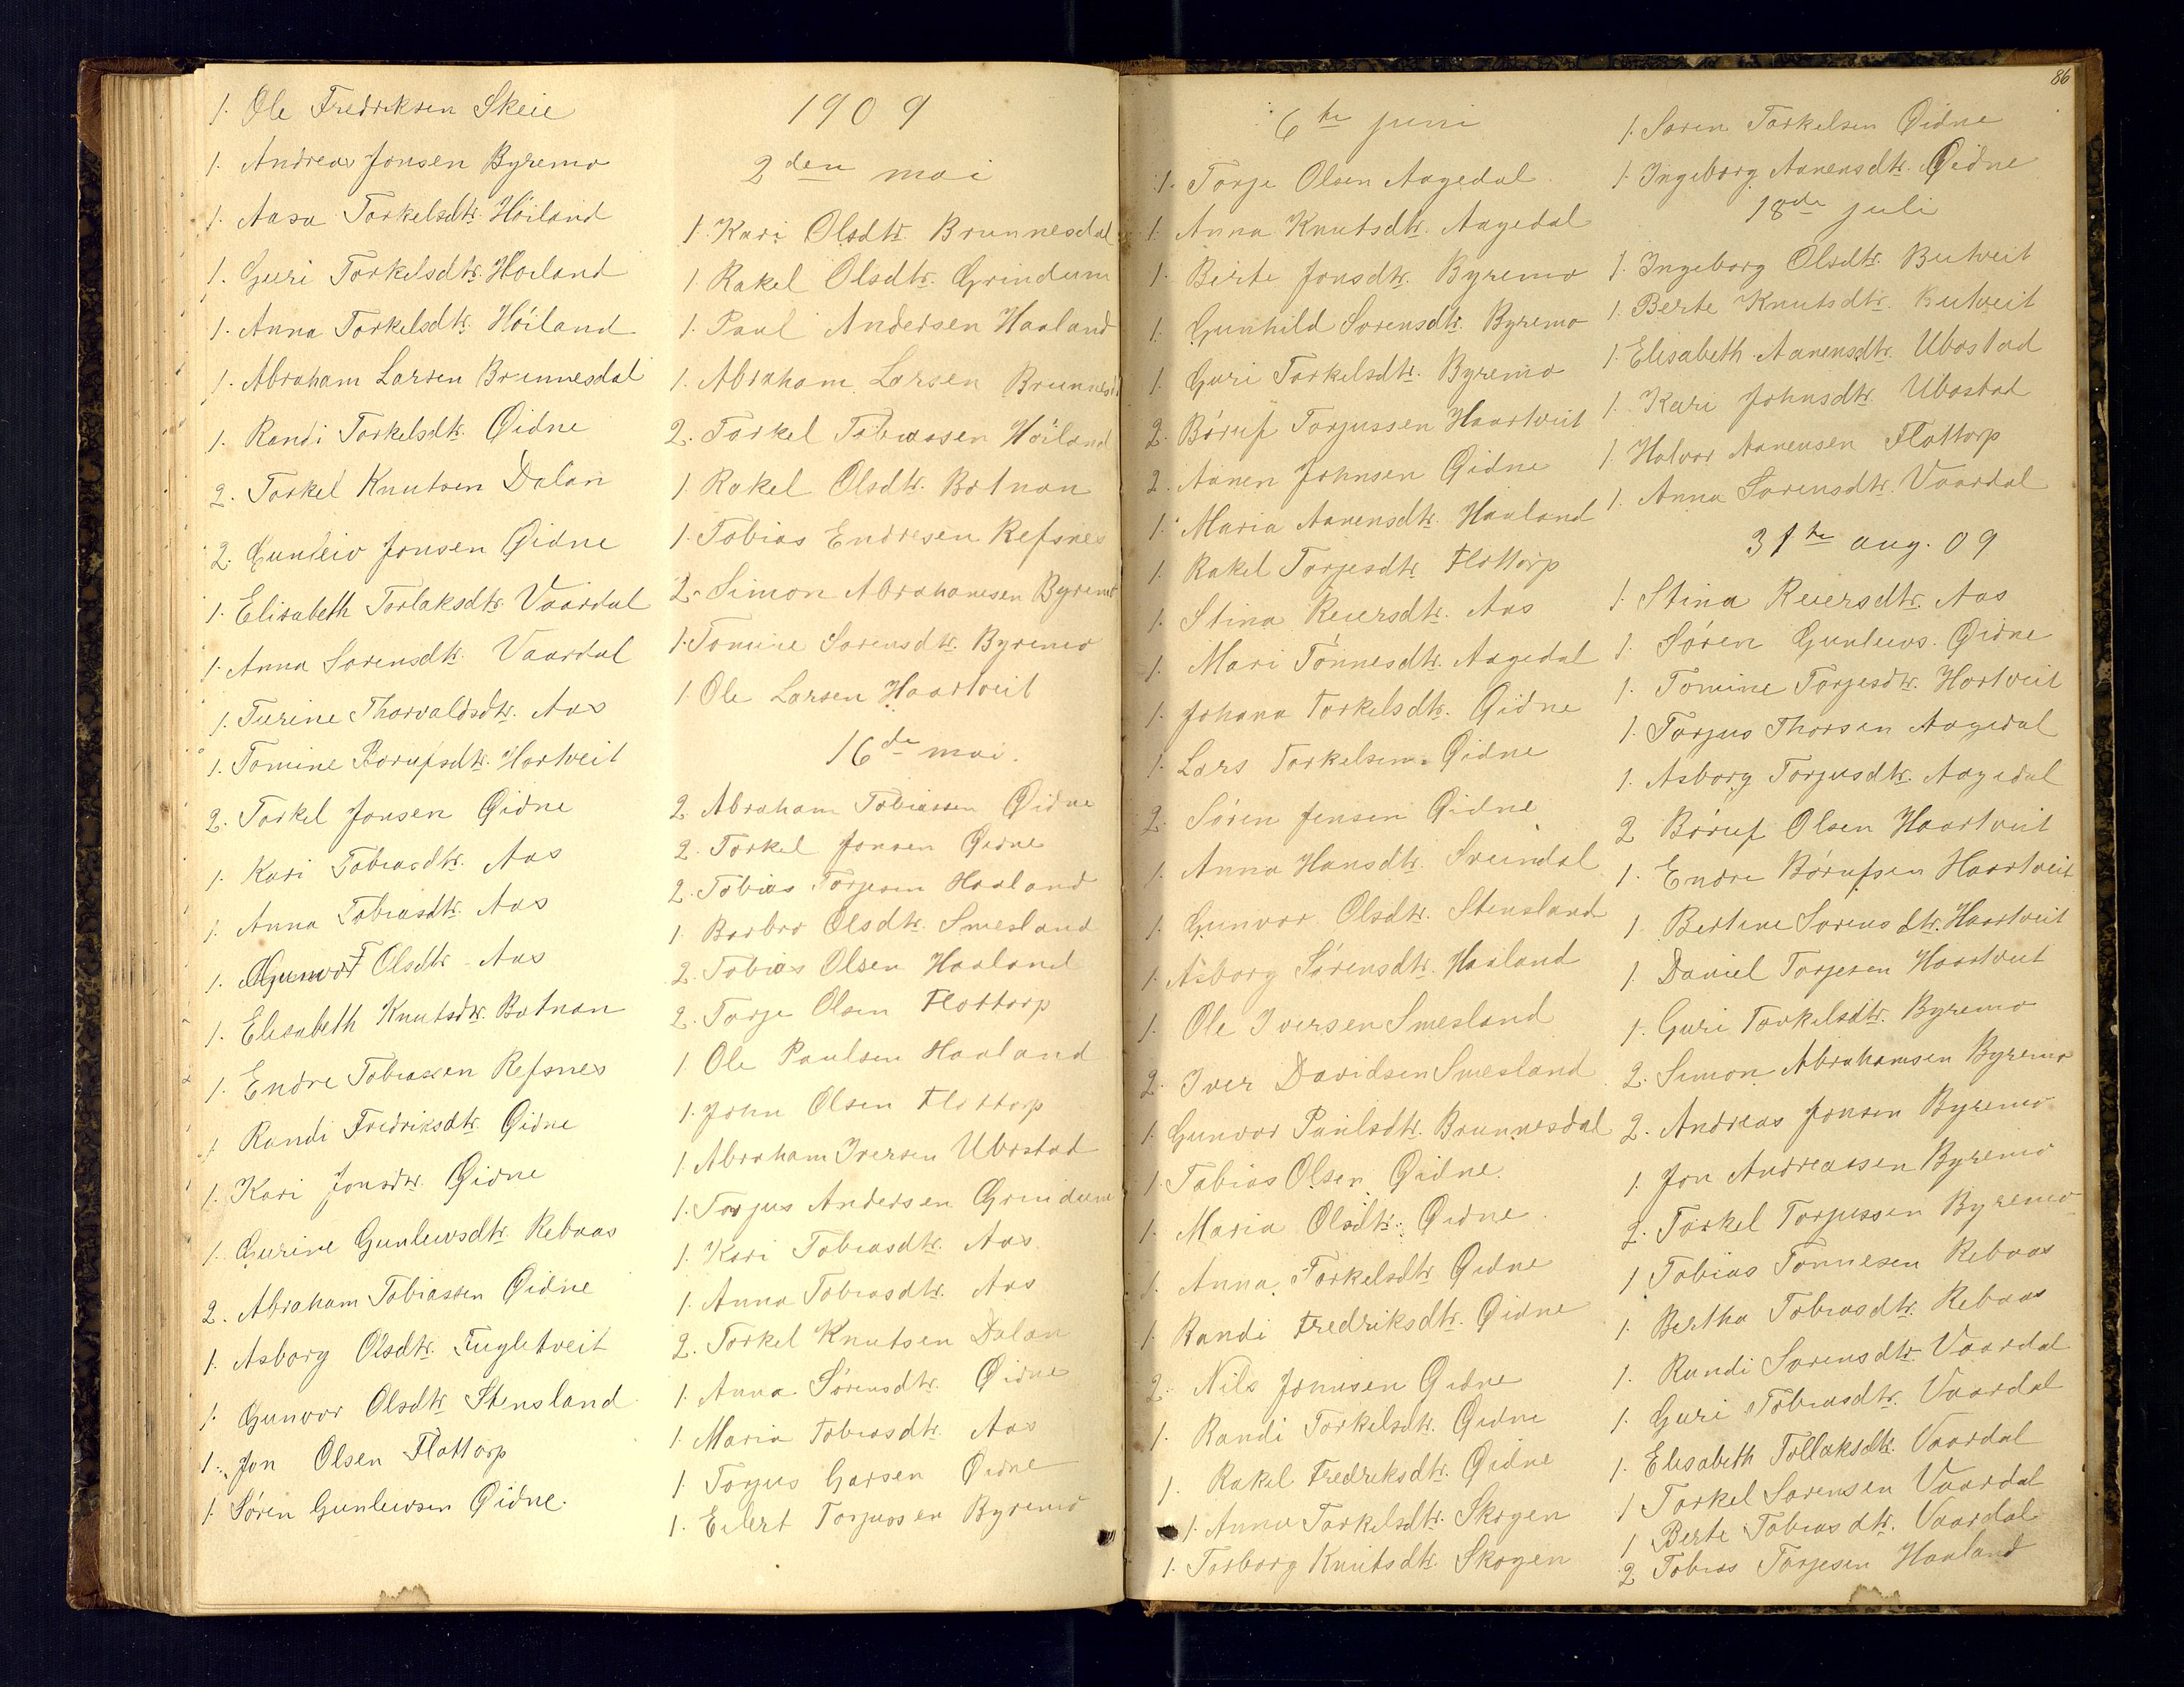 1. Ole Fredriksen Skeie
1. Andreas Jonsen Byremo
1. Aasa Torkelsdtr. Høiland
1. Guri Torkelsdtr. Høiland
1. Anna Torkelsdtr. Høiland
1. Abraham Larsen Brunnesdal
1. Randi Torkelsdtr. Øidne
2. Torkel Knutsen Dalan
2. Gunleiv Jonsen Øidne
1. Elisabeth Torlaksdtr. Vaardal
1. Anna Sorensdtr. Vaardal
1. Turine Thorvaldsdtr. Aas
1. Tomine Børufsdtr. Hartveit
2. Torkel Jonsen Øidne
1. Kari Tobiasdtr. Aas
1. Anna Tobiasdtr. Aas
1. Gunvor Olsdtr. Aas
1. Elisabeth Knutsdtr. Botnan
1. Endre Tobiassen Refsnes
1. Randi Fredriksdtr. Øidne
1. Kari Jonsdtr. Øidne
1. Gurine Gunleivsdtr. Rebaas
2. Abraham Tobiassen Øidne
1. Asborg Olsdtr. Fugletveit
1. Gunvor Olsdtr. Stensland
1. Jon Olsen Flottorp
1. Søren Gunleivsen Øidne.
1909
2den mai
1. Kari Olsdtr. Brunnesdal
1. Rakel Olsdtr. Grindum
1. Paul Andersen Haaland
1. Abraham Larsen Brunnesd
2. Torkel Tobiassen Høiland
1. Rakel Olsdtr. Botnan
1. Tobias Endresen Refsnes
2. Simon Abrahamsen Byremo
1. Tomine Sorensdtr. Byremo
1. Ole Larsen Haartveit
16de mai.
2. Abraham Tobiassen Øidne
2. Torkel Jonsen Øidne
2. Tobias Torjesen Haaland
1. Barbro Olsdtr. Smesland
2. Tobias Olsen Haaland
2. Torje Olsen Flottorp
1. Ole Paulsen Haaland
1. John Olsen Flottorp
1. Abraham Iversen Ubostad
1. Torjus Andersen Grindum
1. Kari Tobiasdtr. Aas
1. Anna Tobiasdtr. Aas
2. Torkel Knutsen Dalan
1. Anna Sørensdtr. Øidne
1. Maria Tobiasdtr. Aas
1. Torjus Larsen Øidne
1. Eilert Torjussen Byremo
86
6te juni
1. Torje Olsen Aagedal
1. Anna Knutsdtr. Aagedal
1. Birte Jonsdtr. Byremo
1. Gunhild Sorensdtr. Byremo
1. Guri Torkelsdtr. Byremo
2. Børuf Torjussen Haartveit
2. Aanen Johnsen Øidne
1. Maria Aanensdtr. Haaland
1. Rakel Torjesdtr. Flottorp
1. Stina Reiersdtr. Aas
1. Mari Tønnesdtr. Aagedal
1. Johana Torkelsdtr. Øidne
1. Lars Torkelsen Øidne
2. Søren Jensen Øidne
1. Anna Hansdtr. Sveindal
1. Gunvor Olsdtr. Stensland
1. Asborg Sørensdtr. Haaland
1. Ole Iversen Smesland
2. Iver Davidsen Smesland
1. Gunvor Paulsdtr. Brunnesdal
1. Tobias Olsen Øidne.
1. Maria Olsdtr. Øidne
1. Anna Torkelsdtr. Øidne
1. Randi Fredriksdtr. Øidne
2. Nils Jonnsen Øidne
1. Randi Torkelsdtr. Øidne
1. Rakel Fredriksdtr. Øidne
1. Anna Torkelsdtr. Skogen
1. Torborg Knutsdtr. Skogen
1. Soren Torkelsen Øidne
1. Ingeborg Aanensdtr. Øidne
18de juli
1. Ingeborg Olsdtr. Butveit
1. Berte Knutsdtr. Butveit
1. Elisabeth Aanensdtr. Ubostad
1. Kari Johnsdtr. Ubostad
1. Halvor Aanensen Flottorp
1. Anna Sorensdtr. Vaardal
31te aug. 09
1. Stina Reiersdtr. Aas
1. Søren Gunleivs. Øidne
1. Tomine Torjesdtr. Hartveit
1. Torjus Thorsen Aagedal
1. Asborg Torjusdtr. Aagedal
2 Børuf Olsen Haartveit
1. Endre Børufsen Haartveit
1. Bertine Sorensdtr. Haartveit
1. Daniel Torjesen Haartveit
1. Guri Torkelsdtr. Byremo
2. Simon Abrahamsen Byremo
2. Andreas Jonsen Byremo
1. Jon Andreassen Byremo
2. Torkel Torjussen Byremo
1 Tobias Tonnesen Rebaas
1. Bertha Tobiasdtr. Rebaas
1. Randi Sorensdtr. Vaardal
1. Guri Tobiasdtr. Vaardal
1. Elisabeth Tollaksdtr. Vaardal
1 Torkel Sorensen Vaardal
1 Berte Tobiasdtr. Vaardal
2 Tobias Torjesen Haaland